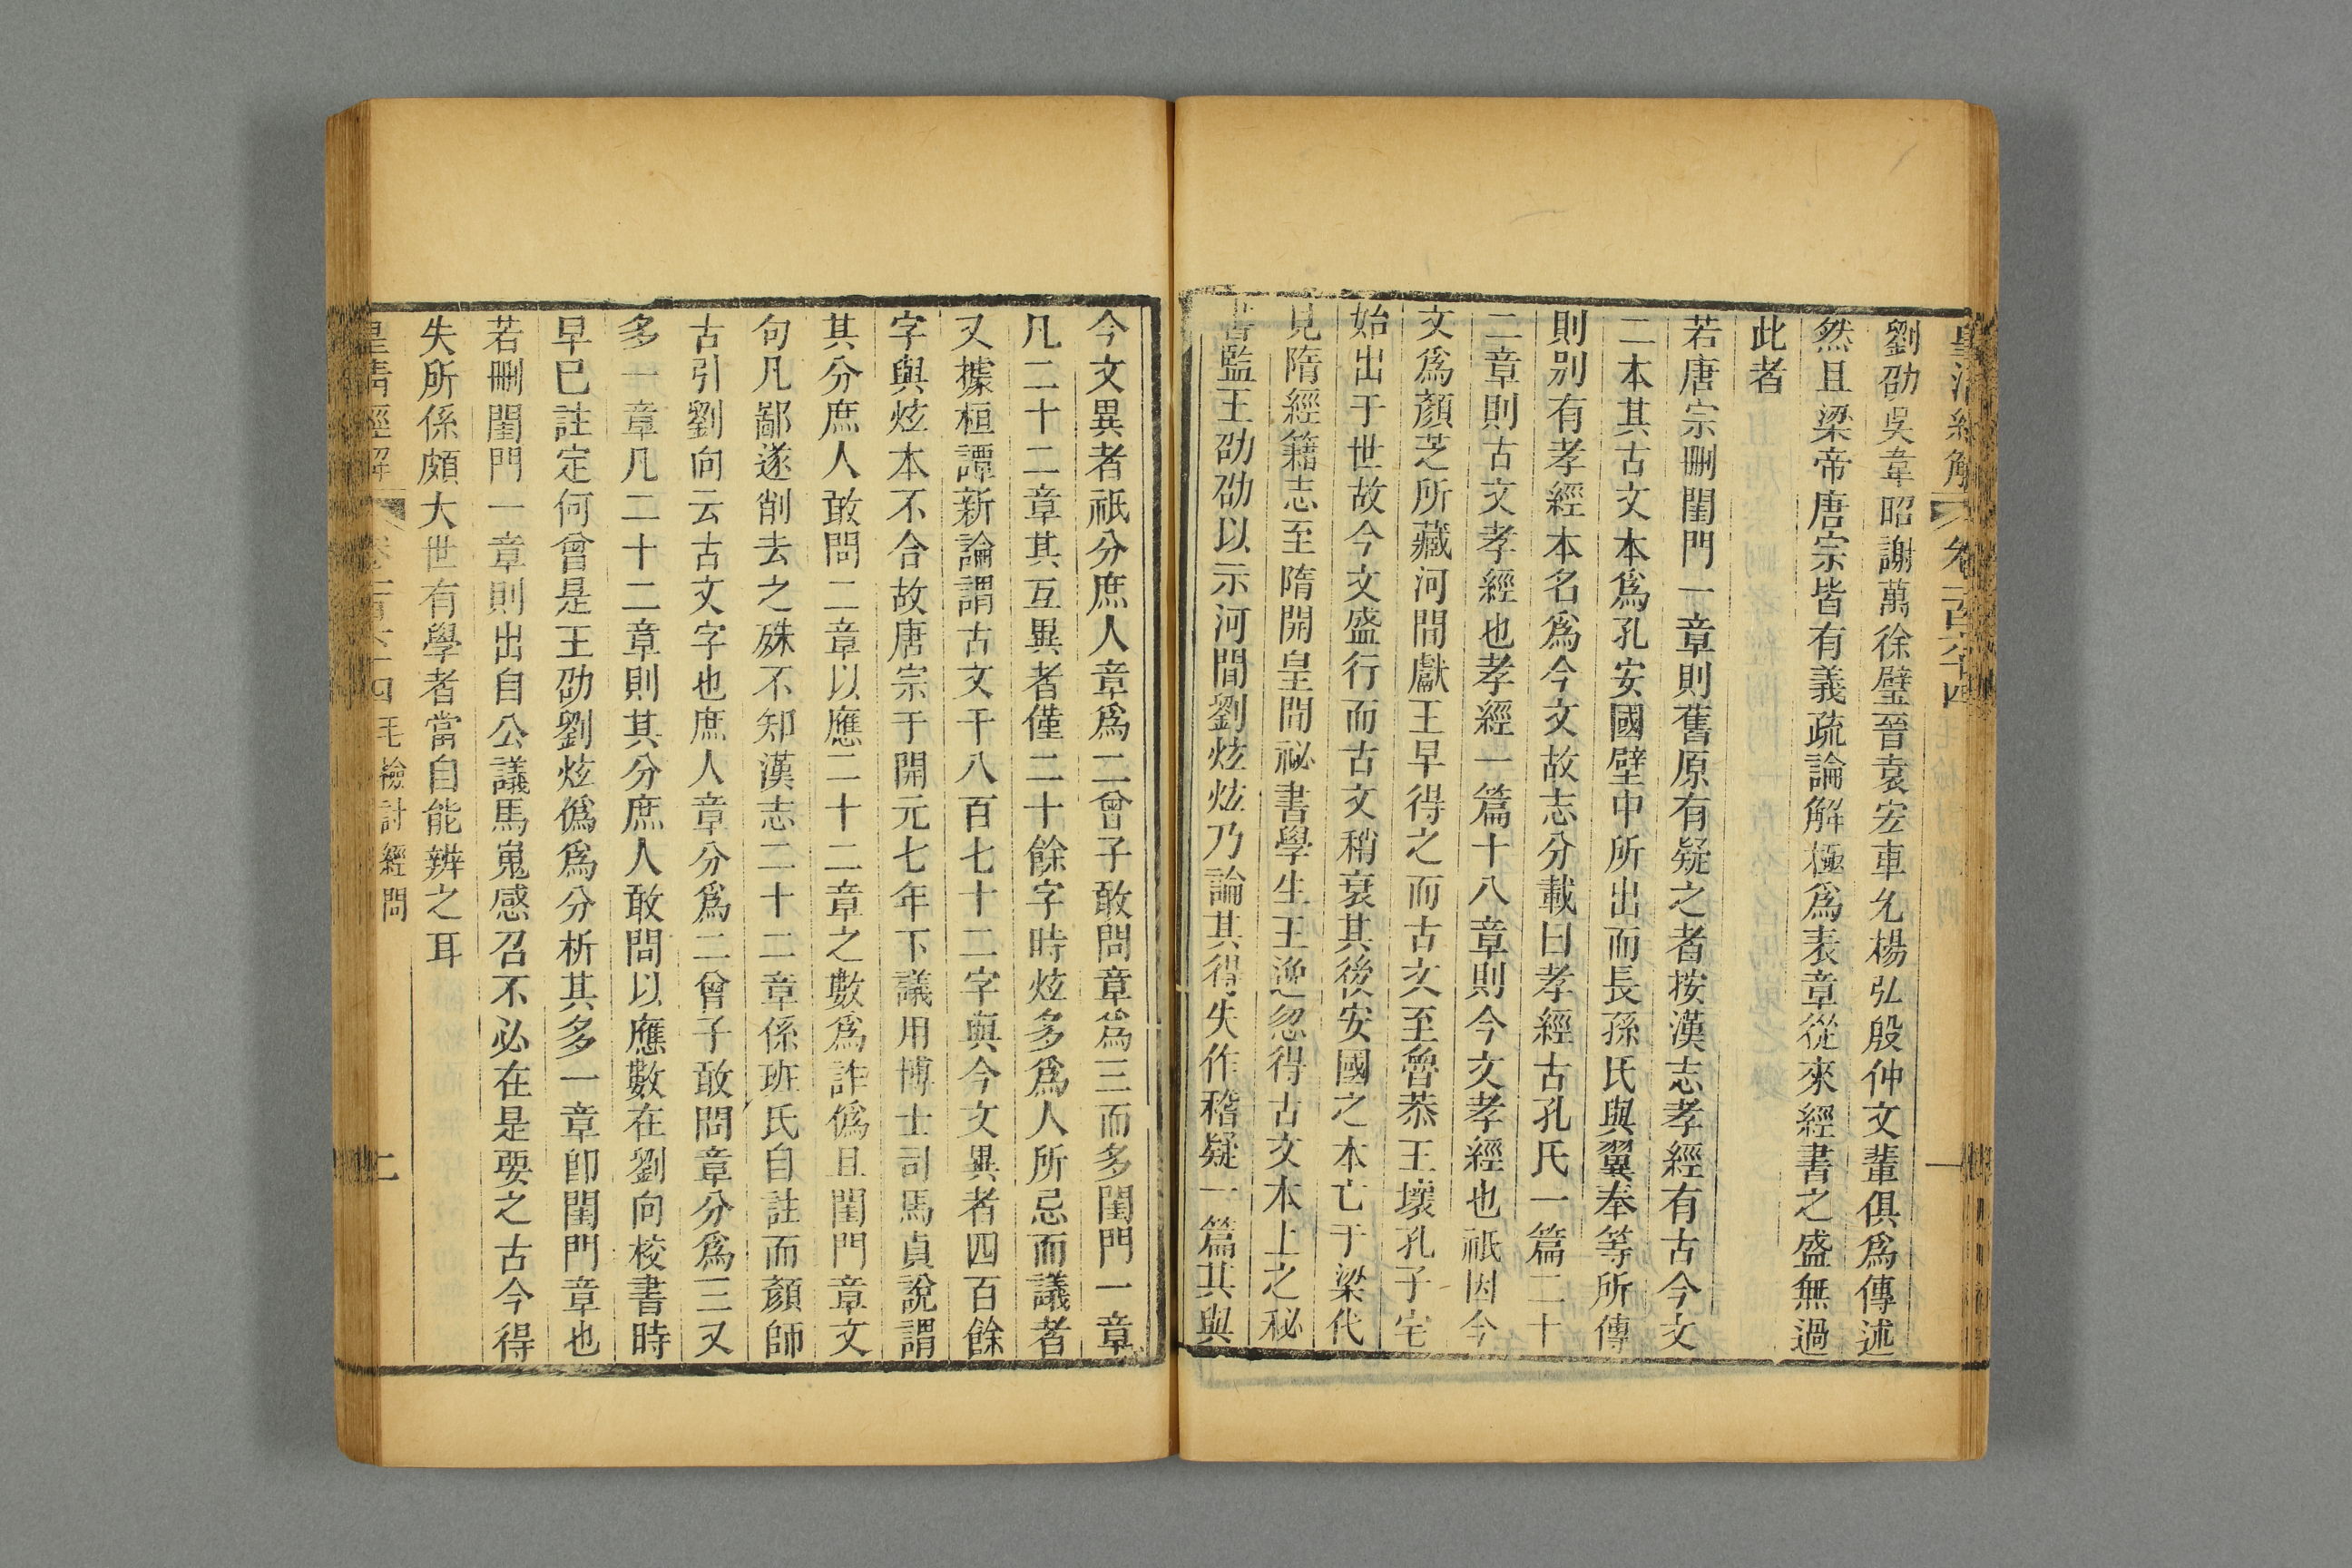 皇清經解
卷一百六十四
一
劉劭吳韋昭謝萬徐璧晉袁宏車允楊弘殷仲文輩俱爲傳述
然且梁帝唐宗皆有義疏論解極爲表章從來經書之盛無過
此者
若唐宗刪閨門一章則舊原有疑之者按漢志孝經有古今文
二本其古文本爲孔安國壁中所出而長孫氏與翼奉等所傳
則別有孝經本名爲今文故志分載曰孝經古孔氏一篇二十
二章則古文孝經也孝經一篇十八章則今文孝經也祇因今
文爲顏芝所藏河間獻王早得之而古文至魯恭王壞孔子宅
始出于世故今文盛行而古文稍衰其後安國之本亡于梁代
見隋經籍志至隋開皇間祕書學生王逸忽得古文本上之秘
書監王劭劭以示河間劉炫炫乃論其得失作稽疑一篇其與
今文異者祇分庶人章爲二曾子敢問章爲三而多閨門一章
凡二十二章其互異者僅二十餘字時炫多爲人所忌而議者
又據桓譚新論謂古文千八百七十二字與今文異者四百餘
字與炫本不合故唐宗于開元七年下議用博士司馬貞說謂
其分庶人敢問二章以應二十二章之數爲詐僞且閨門章文
句凡鄙遂削去之殊不知漢志二十二章係班氏自註而顏師
古引劉向云古文字也庶人章分爲二曾子敢問章分爲三又
多一章凡二十二章則其分庶人敢問以應數在劉向校書時
早已註定何曾是王劭劉炫僞爲分析其多一章卽閨門章也
若刪閨門一章則出自公議馬嵬感召不必在是要之古今得
失所係頗大世有學者當自能辨之耳
皇清經解
卷一百六十四
毛檢討經問
二